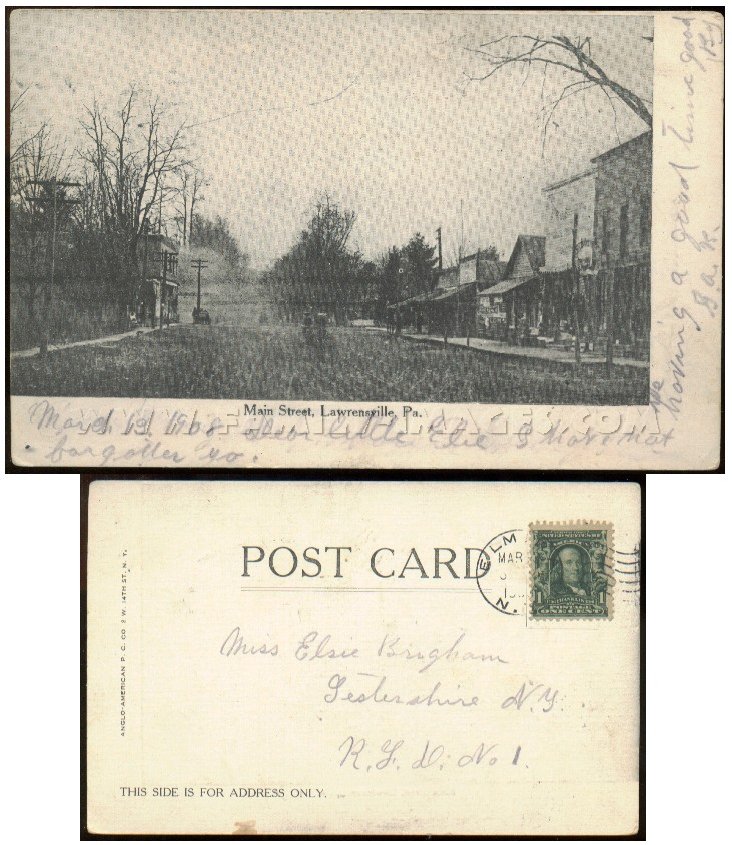 Main Street, Lawrensville, Pa.
March 19 1908 Dear little Elsie I have not
forgotten yo.
having a good time good
by
G. a. K.
POST CARD
ELM
MAR
N.
UNITED STATES
1
ONE CENT
ANGLO-AMERICAN P. C. CO. 2 W. 14TH ST. N. Y.
Miss Elsie Brigham
Lestershire N.Y.
R. F. D. No 1.
THIS SIDE IS FOR ADDRESS ONLY.